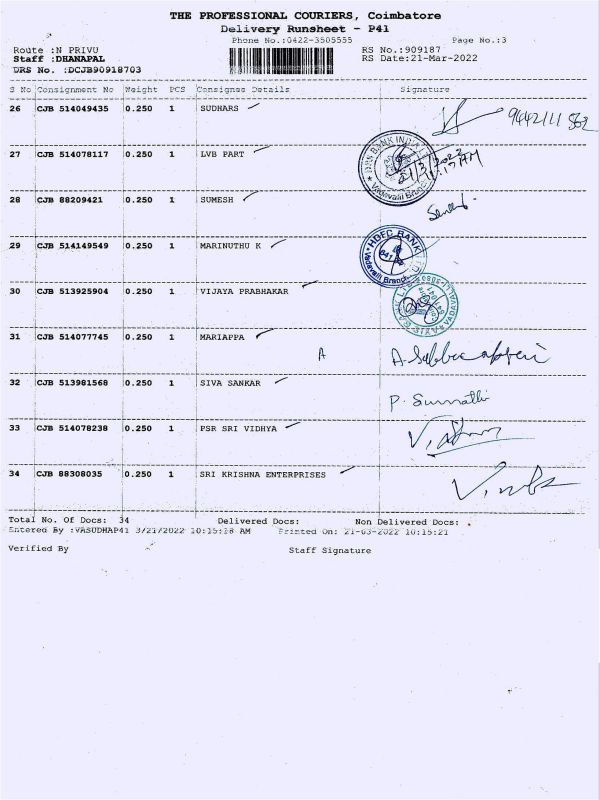 THE PROFESSIONAL COURIERS, Coimbatore
Delivery Runsheet - P41
Phone No.:0422-3505555 Page No.:3
Route :N PRIVU RS No.:909187
Staff :DHANAPAL RS Date:21-Mar-2022
DRS No. :DCJB90918703
S No Consignment No Weight PCS Consignee Details Signature
26 CJB 514049435 0.250 1 SUDHARS
27 CJB 514078117 0.250 1 LVB PART
DBS BANK INDIA
Vadavalli Branch
28 CJB 88209421 0.250 1 SUMESH
29 CJB 514149549 0.250 1 MARINUTHU K
HDFC BANK
Vadavalli Branch
30 CJB 513925904 0.250 1 VIJAYA PRABHAKAR
31 CJB 514077745 0.250 1 MARIAPPA
A
32 CJB 513981568 0.250 1 SIVA SANKAR
33 CJB 514078238 0.250 1 PSR SRI VIDHYA
34 CJB 88308035 0.250 1 SRI KRISHNA ENTERPRISES
Total No. Of Docs: 34 Delivered Docs: Non Delivered Docs:
Entered By :VASUDHAP41 3/21/2022 10:15:18 AM Printed On: 21-03-2022 10:15:21
Verified By Staff Signature